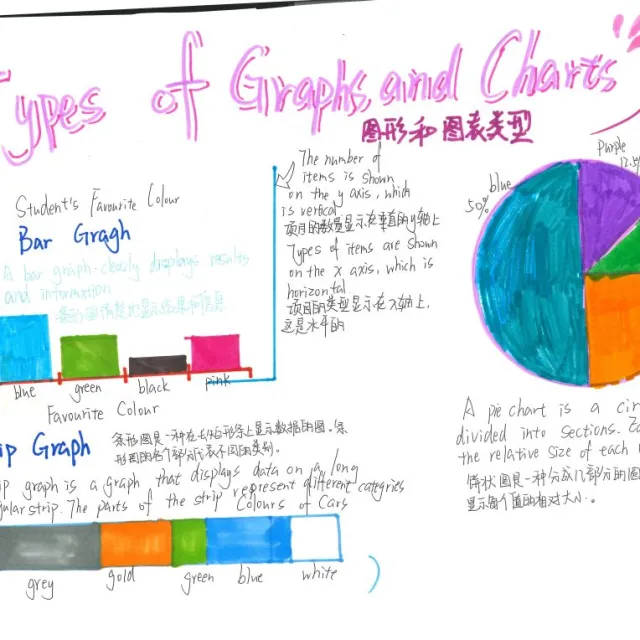 Types of Graphs and Charts
图形和图表类型
Student's Favourite Colour
Bar Gragh
A bar graph clearly displays results
and information
条形图清楚地显示结果和信息
blue
green
black
pink
Favourite Colour
The number of
items is shown
on the y axis, which
is vertical
项目的数量显示在垂直的y轴上
Types of items are shown
on the x axis, which is
horizontal
项目的类型显示在x轴上,
这是水平的
Purple
12.5%
blue
50%
A pie chart is a cir
divided into sections. Ea
the relative size of each
饼状图是一种分成几部分的圆
显示每个值的相对大小.
ip Graph
条形图是一种在长方形条上显示数据的图。条
形图的各个部分代表不同的类别.
ip graph is a graph that displays data on a long
gular strip. The parts of the strip represent different categries
Colours of Cars
grey
gold
green
blue
white